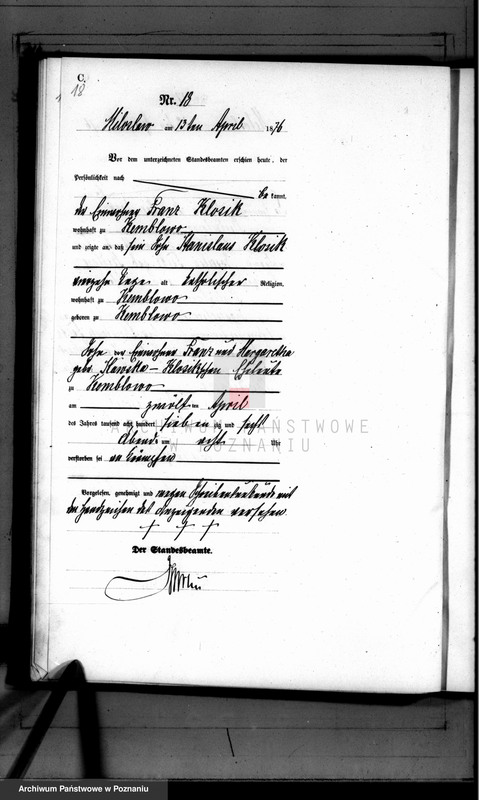 C.
18
Nr. 18
Miloslaw am 13ten April 1876
Vor dem unterzeichneten Standesbeamten erschien heute, der
Persönlichkeit nach
be kannt,
der Einwohner Franz Klosik
wohnhaft zu Kemblowo
und zeigte an, daß sein Sohn Stanislaus Klosik
vierzehn Tage alt katholischer Religion,
wohnhaft zu Kemblowo
geboren zu Kemblowo
Sohn der Einwohner Franz und Margaretha
geb. Klosik'schen Eheleute
zu Kemblowo
am zwölften April
des Jahres tausend acht hundert sieben zig und sechs
Abends um acht Uhr
verstorben sei an Krämpfen
Vorgelesen, genehmigt und wegen Schreibenunkunde mit
den Handzeichen des Anzeigenden versehen
+ + +
Der Standesbeamte.
ARCHIWUM PAŃSTWOWE
W POZNANIU
Archiwum Państwowe w Poznaniu